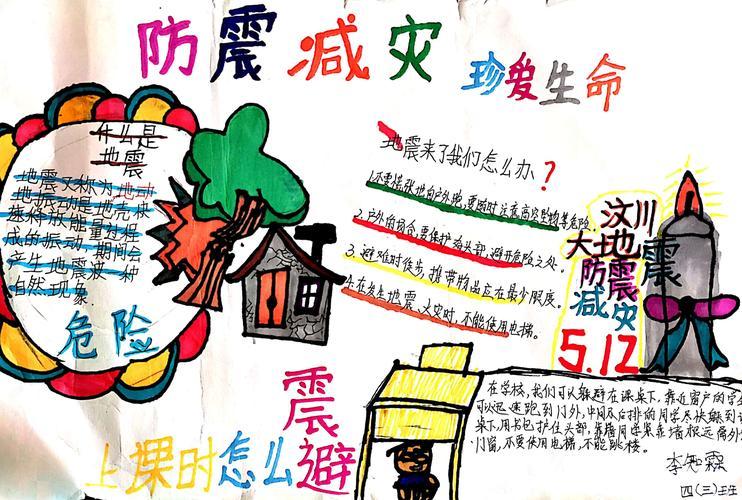 防震减灾 珍爱生命
什么是
地震
地震又称为地动
地振动是地壳快
速释放能量过程
成的振动,期间会
产生地震波一种
自然现象.
危险
地震来了我们怎么办?
1.不要慌张地向户外跑,要随时注意高空坠物等危险.
2.户外的场合,要保护好头部,避开危险之处.
3.避难时徒步,携带物品应在最少限度.
4.在发生地震、火灾时,不能使用电梯.
汶川
大地震
防震
减灾
5.12
上课时怎么避震
在学校,我们可以躲避在课桌下,靠近窗户的学生
可以迅速跑到门外,中间及后排的同学尽快躲到课
桌下,用书包护住头部,靠墙同学紧靠墙根远离外
门窗,不要使用电梯,不能跳楼.
四(三)班